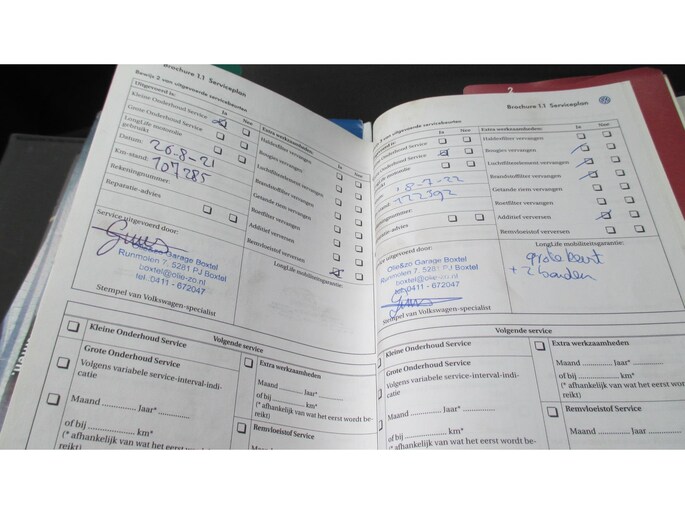 Brochure 1.1 Serviceplan
Bewijs 2 van uitgevoerde servicebeurten
Uitgevoerd is: Ja Nee
Kleine Onderhoud Service
Grote Onderhoud Service
LongLife motorolie gebruikt
Datum: 26-8-21
Km-stand: 107285
Rekeningnummer:
Reparatie-advies
Extra werkzaamheden: Ja Nee
Pollenfilter vervangen
Bougies vervangen
Luchtfilterelement vervangen
Brandstoffilter vervangen
Getande riem vervangen
Roetfilter vervangen
Additief verversen
Remvloeistof verversen
LongLife mobiliteitsgarantie:
Service uitgevoerd door:
Garage Boxtel
Runmolen 7, 5281 PJ Boxtel
boxtel@olie-zo.nl
tel. 0411 - 672047
Stempel van Volkswagen-specialist
Volgende service
Kleine Onderhoud Service
Grote Onderhoud Service
Volgens variabele service-interval-indi-
catie
Maand ............ Jaar* ............
of bij ............ km*
(* afhankelijk van wat het eerst wordt be-
reikt)
Extra werkzaamheden
Maand ............ Jaar* ............
of bij ............ km*
(* afhankelijk van wat het eerst wordt be-
reikt)
Remvloeistof Service
Maand ............ Jaar ............
2
Brochure 1.1 Serviceplan
van uitgevoerde servicebeurten
Ja Nee
Onderhoud Service
Onderhoud Service
motorolie
8-7-22
122592
nummer:
-advies
Extra werkzaamheden: Ja Nee
Bougies vervangen
Luchtfilterelement vervangen
Brandstoffilter vervangen
Getande riem vervangen
Roetfilter vervangen
Additief verversen
Remvloeistof verversen
LongLife mobiliteitsgarantie:
grote beurt
+ 2 banden
uitgevoerd door:
Olie&zo Garage Boxtel
Runmolen 7, 5281 PJ Boxtel
boxtel@olie-zo.nl
tel. 0411 - 672047
Stempel van Volkswagen-specialist
Volgende service
Kleine Onderhoud Service
Grote Onderhoud Service
Volgens variabele service-interval-indi-
catie
Maand ............ Jaar* ............
of bij ............ km*
(* afhankelijk van wat het eerst wordt be-
reikt)
Extra werkzaamheden
Maand ............ Jaar* ............
of bij ............ km*
(* afhankelijk van wat het eerst wordt be-
reikt)
Remvloeistof Service
Maand ............ Jaar ............